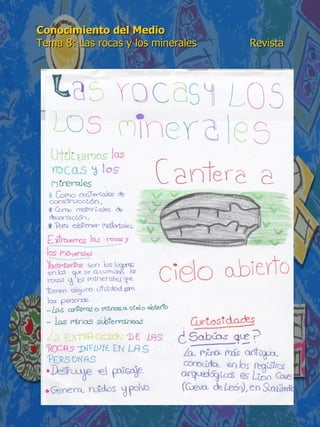 Conocimiento del Medio
Tema 8: Las rocas y los minerales Revista
Las rocas y Los
Los minerales
Utilizamos las
rocas y los
minerales
Como materiales de
construcción.
Como materiales de
decoración.
Para obtener materiales.
Extraemos las rocas y
los minerales
Yacimientos son los lugares
en los que se acumulan las
rocas y los minerales que
tienen alguna utilidad para
las personas.
-Las canteras o minas a cielo abierto
- Las minas subterráneas
LA EXTRACCIÓN DE LAS
ROCAS INFLUYE EN LAS
PERSONAS
Destruye el paisaje
Genera ruidos y polvo.
Cantera a
cielo abierto
Curiosidades
¿Sabías que?
La mina más antigua
conocida, en los registros
arqueológicos es Lion Cave
(Cueva de León), en